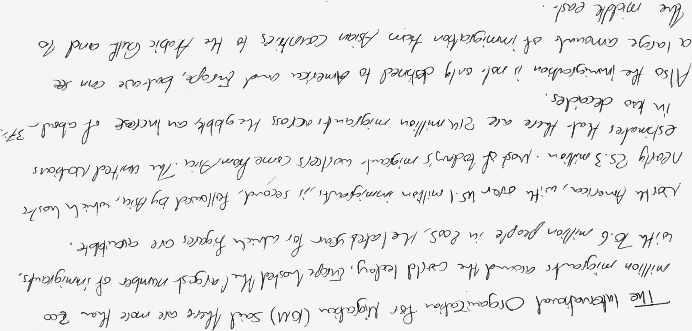 The International Organization for Migration (IOM) said there are more than 200
million migrants around the world today. Europe hosted the largest number of immigrants,
with 70.6 million people in 2005, the latest year for which figures are available.
North America, with over 45.1 million immigrants, is second, followed by Asia, which hosts
nearly 25.3 million. Most of today's migrant workers come from Asia. The United Nations
estimates that there are 214 million migrants across the globe, an increase of about 37%
in two decades.
Also the immigration is not only defined to America and Europe, but we can see
a large amount of immigration from Asian countries to the Arabic Gulf and to
the middle east.